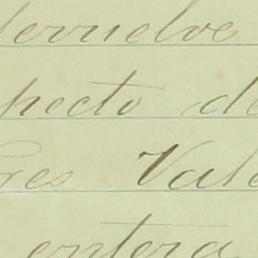 ervuelve
pecto de
res Vale
entera